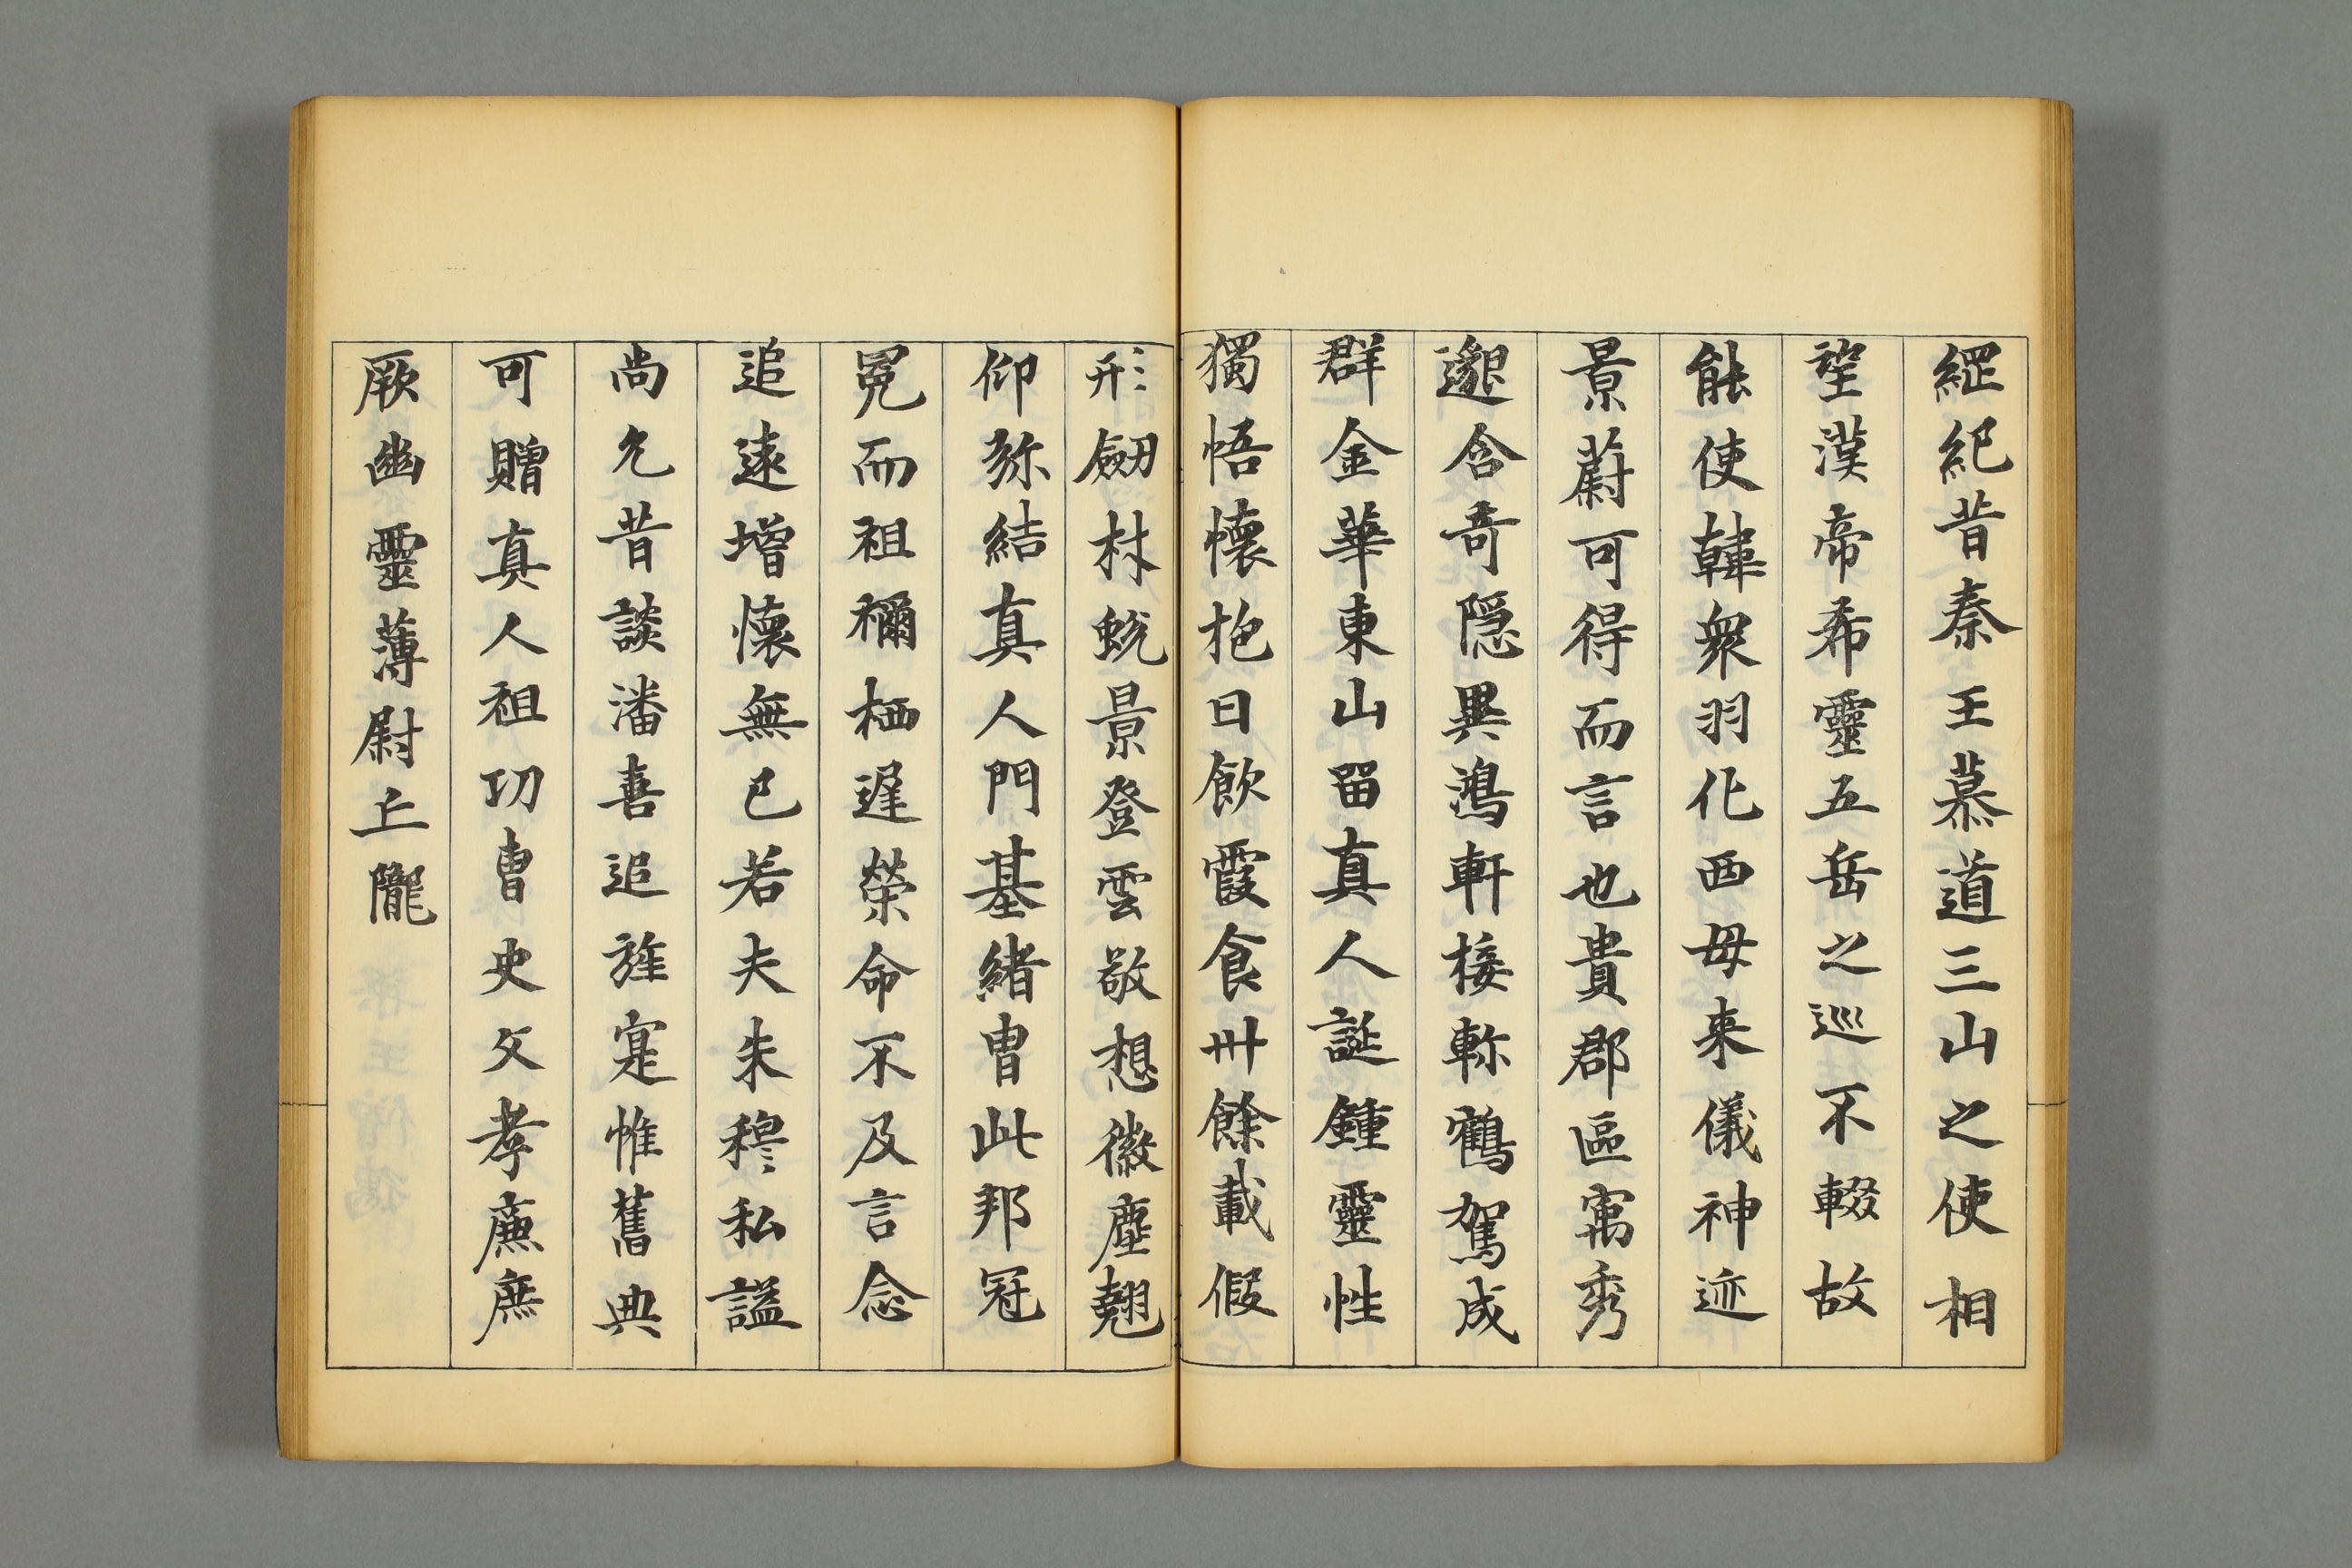 綱紀昔秦王慕道三山之使相
望漢帝希靈五岳之巡不輟故
能使韓衆羽化西母来儀神迹
景蔚可得而言也貴郡區寓秀
邈含奇隠異鴻軒接軫鶴駕成
群金華東山留真人誕鍾靈性
獨悟懷抱日飲霞食卅餘載假
形劒杖蛻景登雲敬想徽塵翹
仰弥結真人門基緒曺此邦冠
冕而祖禰栖遅榮命不及言念
追遠增懷無已若夫朱穆私諡
尚允昔談潘耆追旌寔惟舊典
可贈真人祖功曺史父孝廉庶
厥幽靈薄尉丘隴